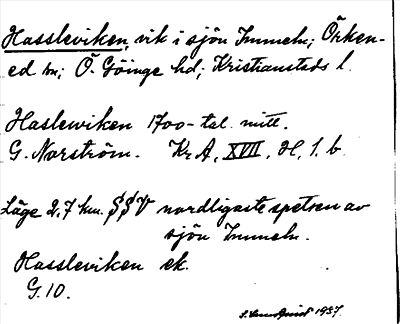 Hassleviken, vik i sjön Immeln; Örken-
ed sn; Ö. Göinge hd; Kristianstads l.
Haslewiken 1700-tal. mitt.
G. Norström. Kr A, XVII, H, 1. b.
Läge 2,7 km. SSV nordligaste spetsen av
sjön Immeln.
Hassleviken ek.
G. 10.
1937.